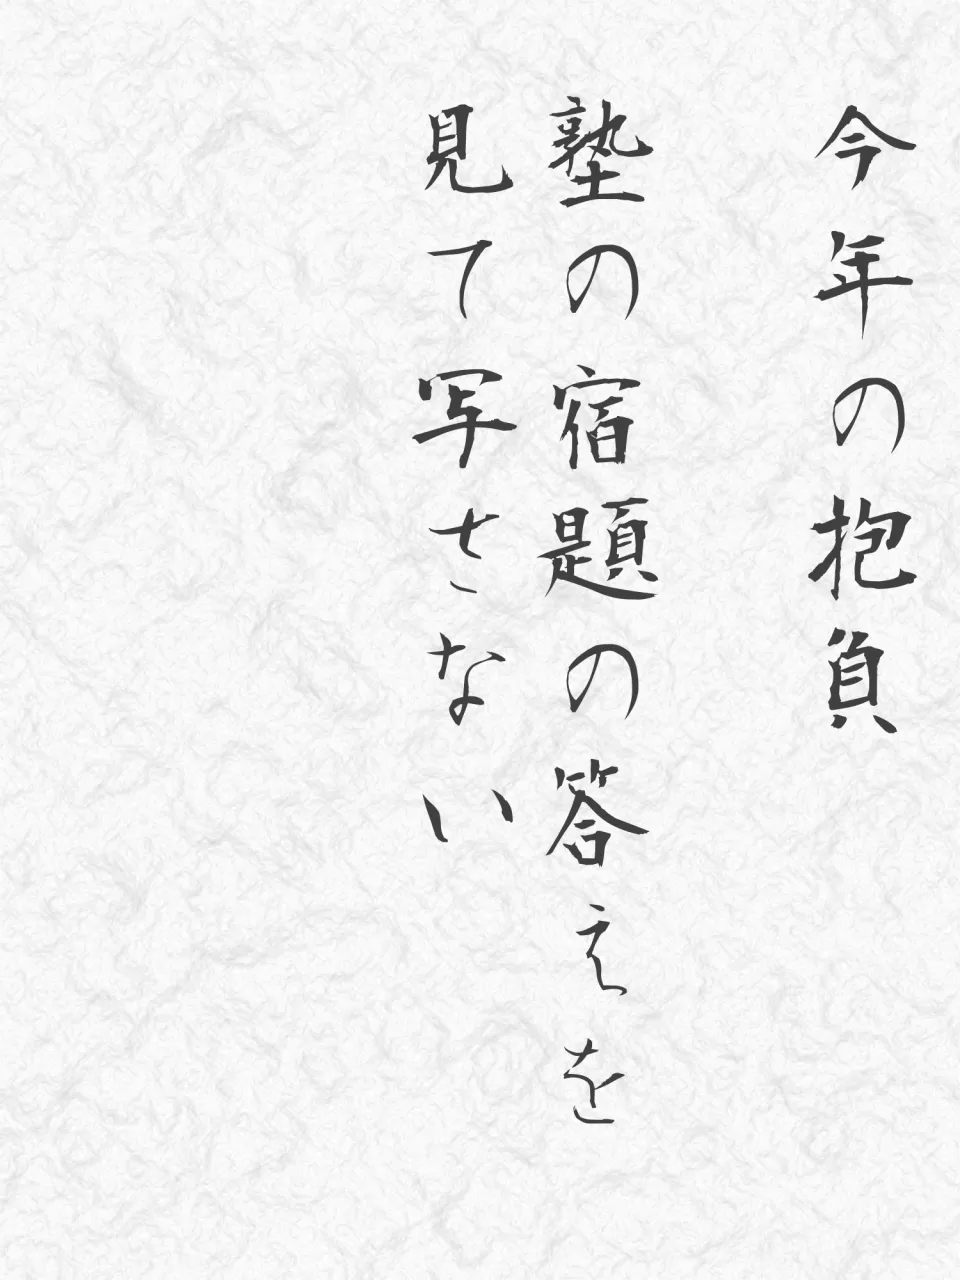 今年の抱負
塾の宿題の答えを
見て写さない